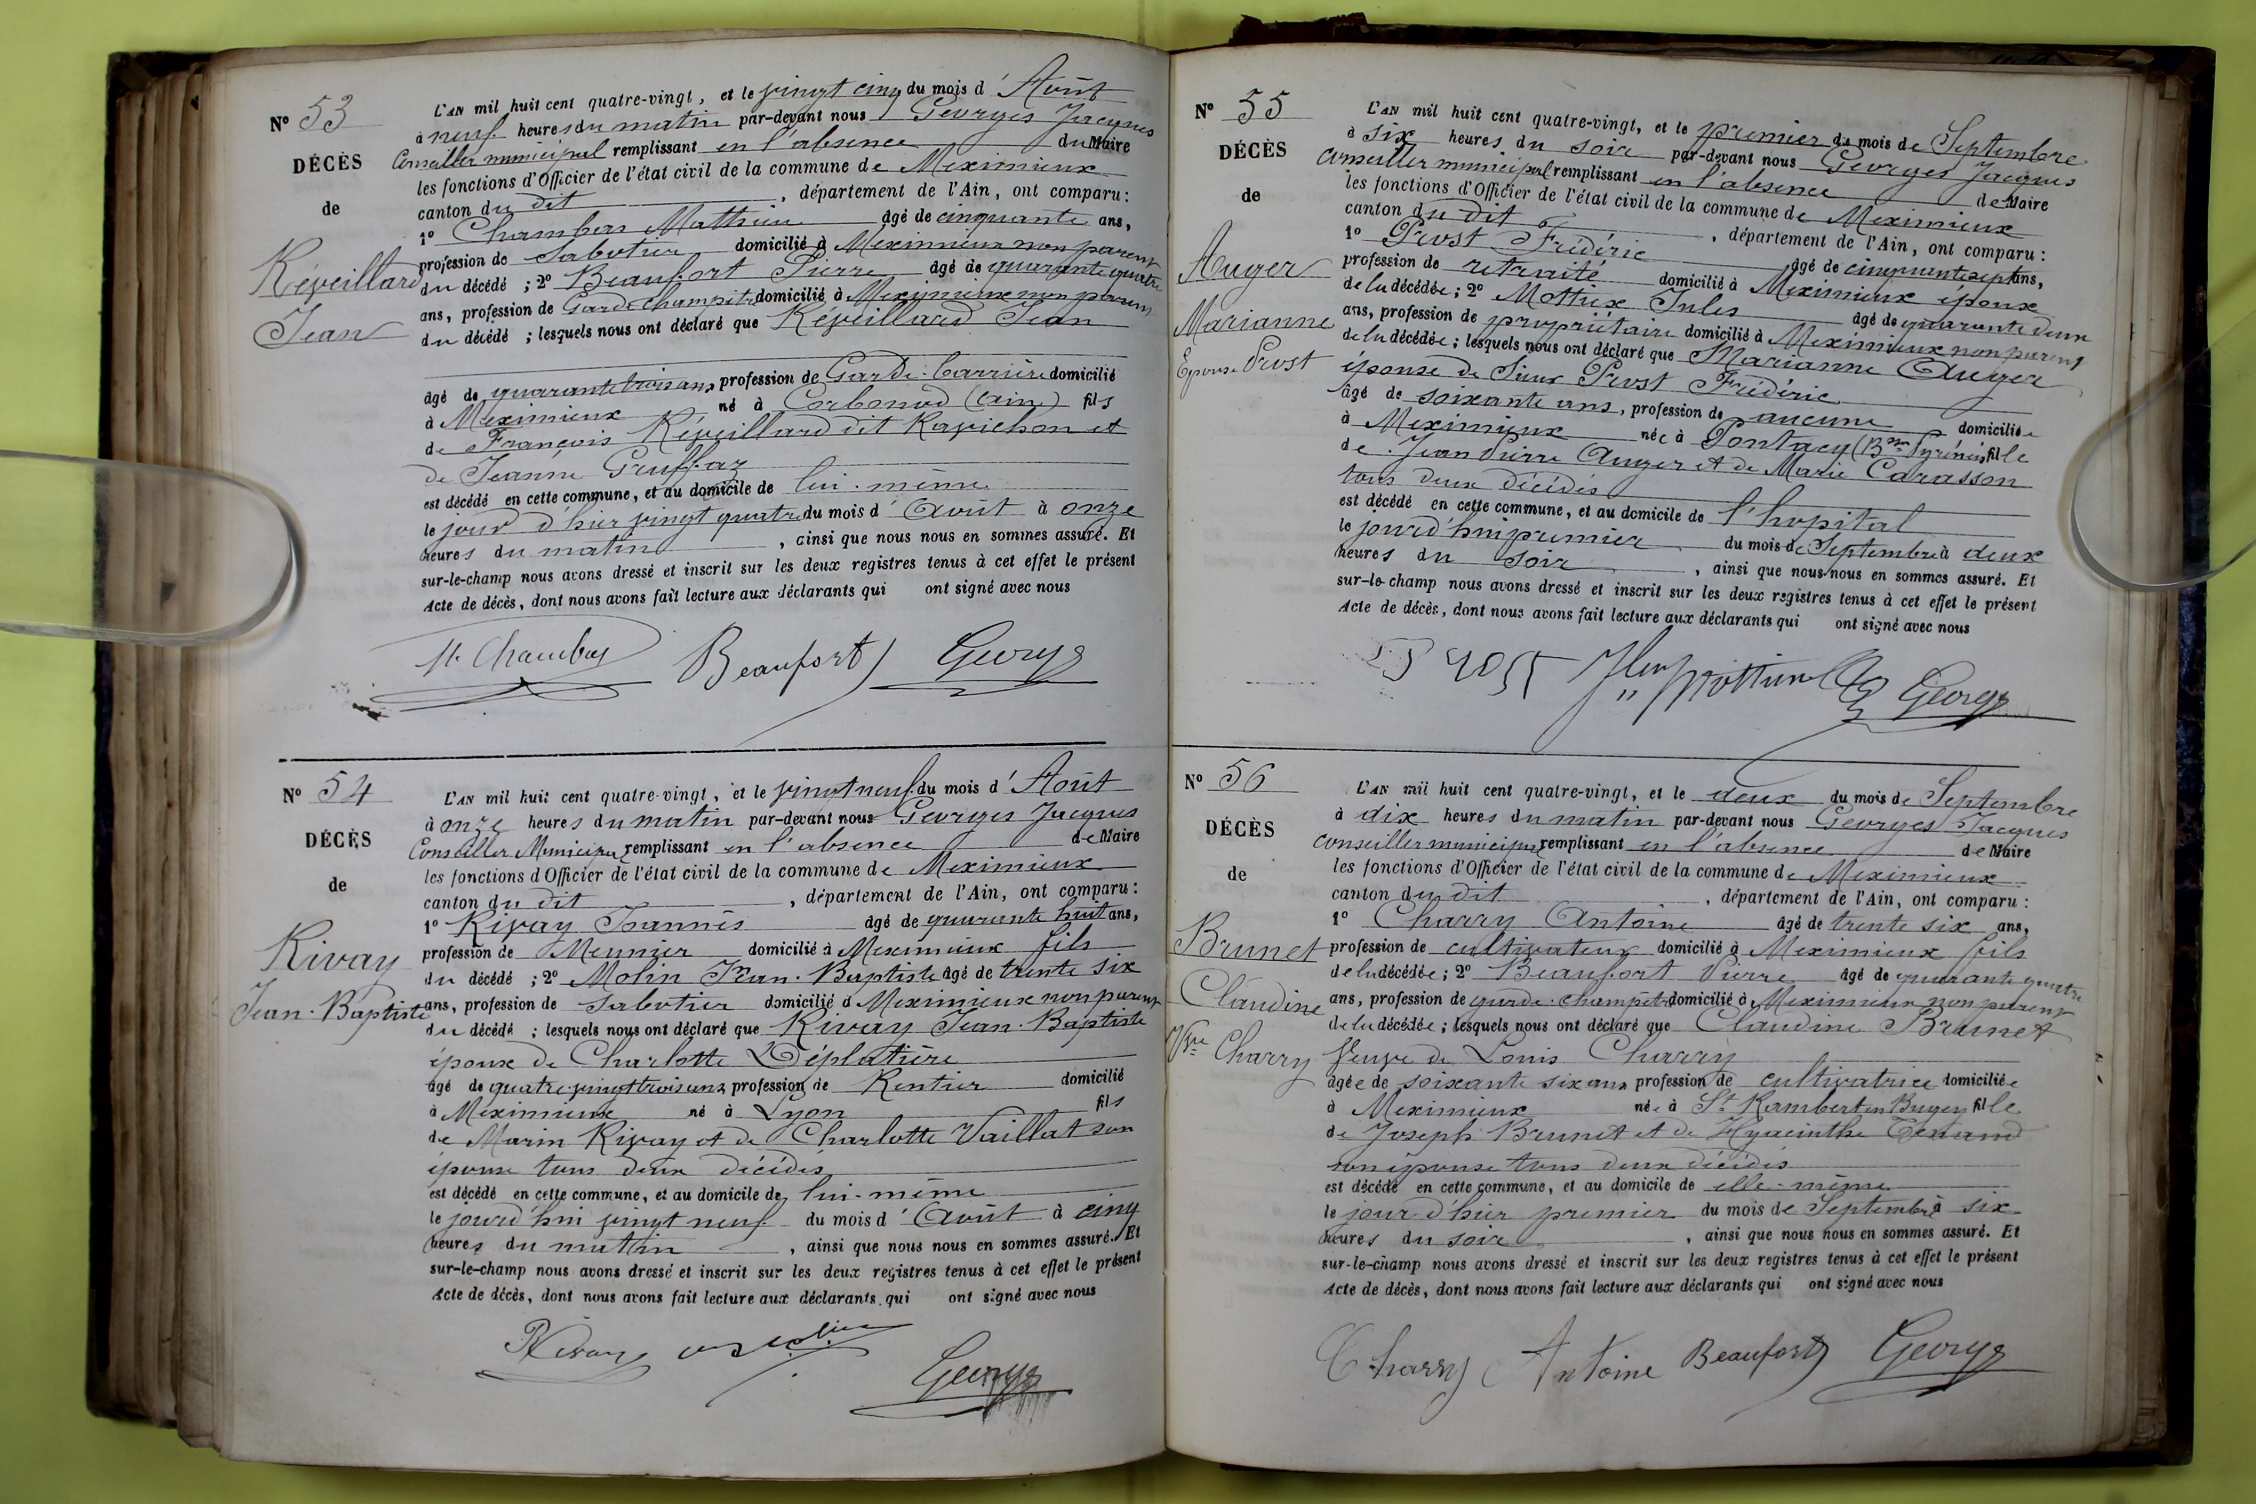 N° 53
DÉCÈS
de
Réveillard
Jean
L'AN mil huit cent quatre-vingt, et le vingt cinq du mois d'Août
à neuf heures du matin par-devant nous Georges Jacques
Conseiller municipal remplissant en l'absence du Maire
les fonctions d'Officier de l'état civil de la commune de Meximieux
canton du dit, département de l'Ain, ont comparu:
1° Mathieu âgé de cinquante ans,
profession de Sabotier domicilié à Meximieux non parent
du décédé; 2° Beaufort Pierre âgé de quarante quatre
ans, profession de Garde champêtre domicilié à Meximieux non parent
du décédé; lesquels nous ont déclaré que Réveillard Jean
âgé de quarante trois ans profession de Garde-barrière domicilié
à Meximieux né à Corbonod (Ain) fils
de François Réveillard dit Ravichon et
de Jeanne Gruffaz
est décédé en cette commune, et au domicile de lui-même
le jour d'hier vingt quatre du mois d'Août à onze
heures du matin, ainsi que nous nous en sommes assuré. Et
sur-le-champ nous avons dressé et inscrit sur les deux registres tenus à cet effet le présent
Acte de décès, dont nous avons fait lecture aux déclarants qui ont signé avec nous
Beaufort Georges
N° 54
DÉCÈS
de
Rivay
Jean-Baptiste
L'AN mil huit cent quatre-vingt, et le vingt neuf du mois d'Août
à onze heures du matin par-devant nous Georges Jacques
Conseiller Municipal remplissant en l'absence de Maire
les fonctions d'Officier de l'état civil de la commune de Meximieux
canton du dit, département de l'Ain, ont comparu:
1° Rivay Joannès âgé de quarante huit ans,
profession de Meunier domicilié à Meximieux fils
du décédé; 2° Molin Jean-Baptiste âgé de trente six
ans, profession de sabotier domicilié à Meximieux non parent
du décédé; lesquels nous ont déclaré que Rivay Jean-Baptiste
époux de Charlotte Déplatière
âgé de quatre-vingt trois ans profession de Rentier domicilié
à Meximieux né à Lyon fils
de Marin Rivay et de Charlotte Vaillat son
épouse tous deux décédés
est décédé en cette commune, et au domicile de lui-même
le jourd'hui vingt neuf du mois d'Août à cinq
heures du matin, ainsi que nous nous en sommes assuré. Et
sur-le-champ nous avons dressé et inscrit sur les deux registres tenus à cet effet le présent
Acte de décès, dont nous avons fait lecture aux déclarants qui ont signé avec nous
Rivay
Georges
N° 55
DÉCÈS
de
Auger
Marianne
Épouse Prost
L'AN mil huit cent quatre-vingt, et le premier du mois de Septembre
à six heures du soir par-devant nous Georges Jacques
conseiller municipal remplissant en l'absence de Maire
les fonctions d'Officier de l'état civil de la commune de Meximieux
canton du dit, département de l'Ain, ont comparu:
1° Prost Frédéric âgé de cinquante sept ans,
profession de retraité domicilié à Meximieux époux
de la décédée; 2° Jules âgé de quarante deux
ans, profession de propriétaire domicilié à Meximieux non parent
de la décédée; lesquels nous ont déclaré que Marianne Auger
épouse de Sieur Prost Frédéric
âgé de soixante ans, profession de aucune domiciliée
à Meximieux née à Pontacq (Bses Pyrénées) fille
de Jean Pierre Auger et de Marie Carasson
tous deux décédés
est décédé en cette commune, et au domicile de l'hopital
le jourd'hui premier du mois de Septembre à deux
heures du soir, ainsi que nous nous en sommes assuré. Et
sur-le-champ nous avons dressé et inscrit sur les deux registres tenus à cet effet le présent
Acte de décès, dont nous avons fait lecture aux déclarants qui ont signé avec nous
Georges
N° 56
DÉCÈS
de
Brunet
Claudine
Vve Charry
L'AN mil huit cent quatre-vingt, et le deux du mois de Septembre
à dix heures du matin par-devant nous Georges Jacques
conseiller municipal remplissant en l'absence de Maire
les fonctions d'Officier de l'état civil de la commune de Meximieux
canton du dit, département de l'Ain, ont comparu:
1° Charry Antoine âgé de trente six ans,
profession de cultivateur domicilié à Meximieux fils
de la décédée; 2° Beaufort Pierre âgé de quarante quatre
ans, profession de garde-champêtre domicilié à Meximieux non parent
de la décédée; lesquels nous ont déclaré que Claudine Brunet
Veuve de Louis Charry
âgée de soixante six ans profession de cultivatrice domiciliée
à Meximieux née à St Rambert en Bugey fille
de Joseph Brunet et de Hyacinthe
son épouse tous deux décédés
est décédé en cette commune, et au domicile de elle-même
le jour d'hier premier du mois de Septembre à six
heures du soir, ainsi que nous nous en sommes assuré. Et
sur-le-champ nous avons dressé et inscrit sur les deux registres tenus à cet effet le présent
Acte de décès, dont nous avons fait lecture aux déclarants qui ont signé avec nous
Charry Antoine Beaufort Georges